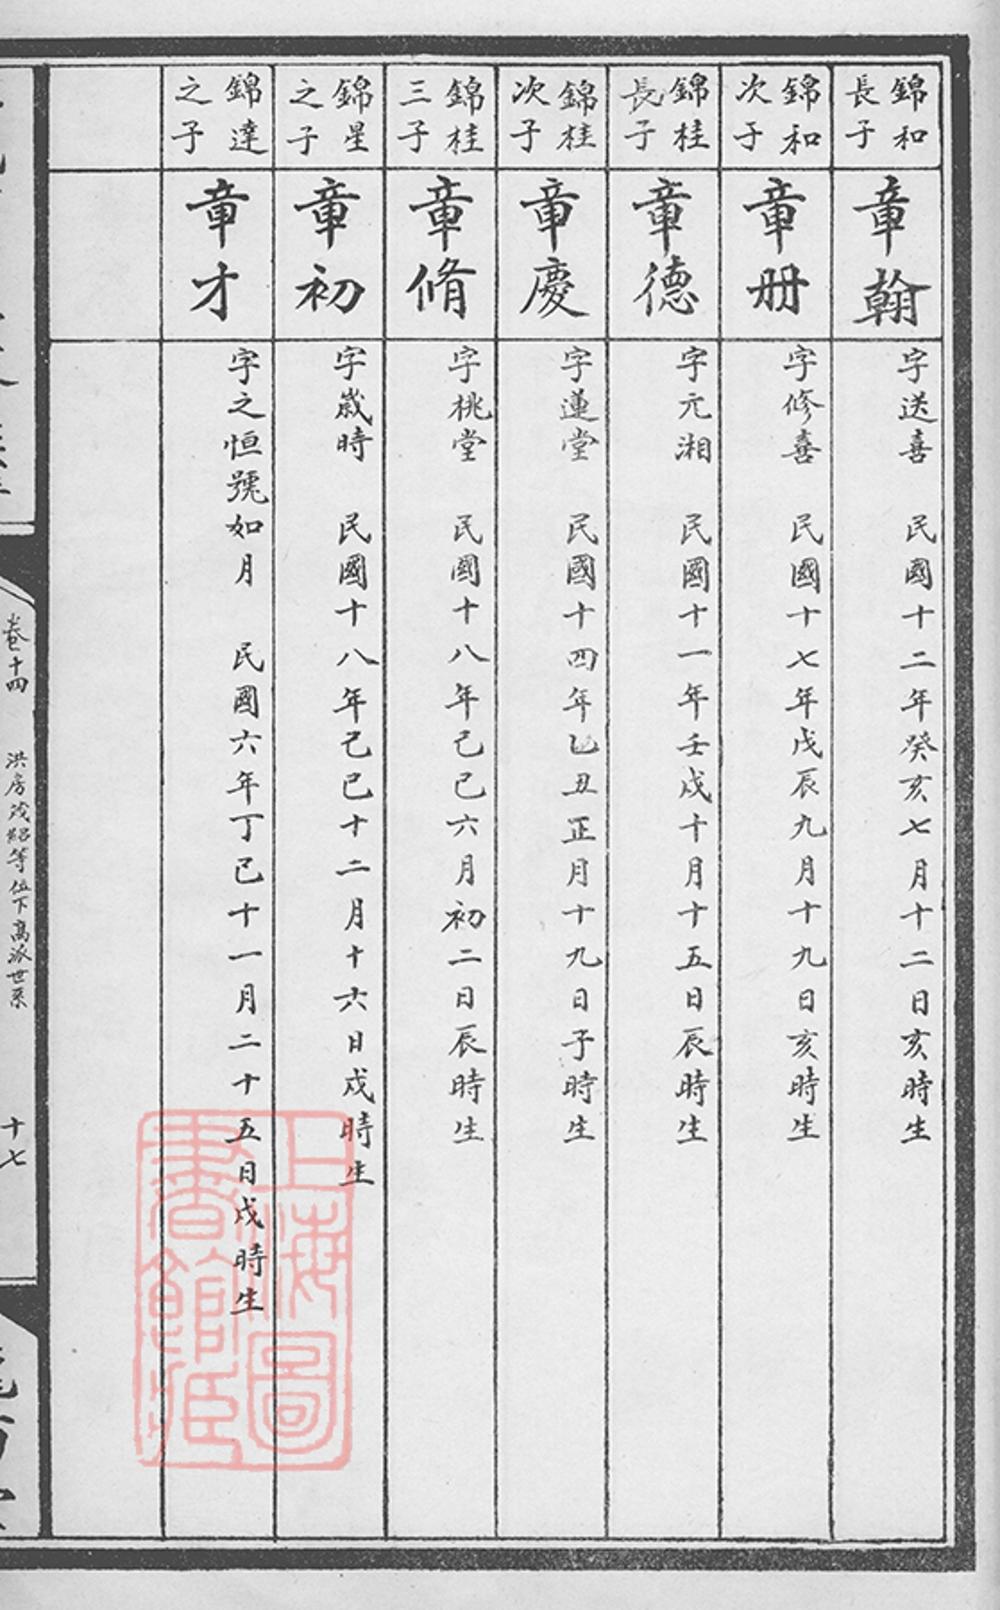 錦和長子
章翰
字送喜　民國十二年癸亥七月十二日亥時生
錦和次子
章册
字修喜　民國十七年戊辰九月十九日亥時生
錦桂長子
章德
字亢湘　民國十一年壬戌十月十五日辰時生
錦桂次子
章慶
字蓮堂　民國十四年乙丑正月十九日子時生
錦桂三子
章脩
字桃堂　民國十八年己巳六月初二日辰時生
錦星之子
章初
字歲時　民國十八年己巳十二月十六日戌時生
錦達之子
章才
字之恒號如月　民國六年丁巳十一月二十五日戌時生
卷十四　洪房茂紹等位下高派世系　十七
上海圖書館藏